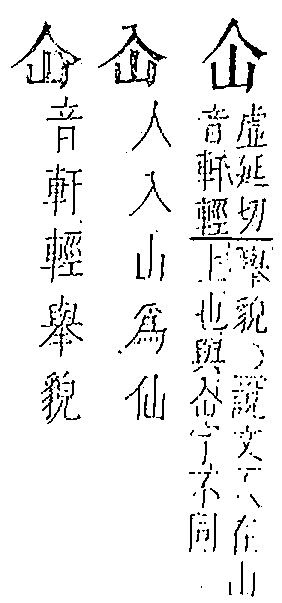 仚
虚延切
音軒輕
舉貌〇說文人在山
上也與㕣字不同
屳
人入山為仙
仚
音軒輕舉貌